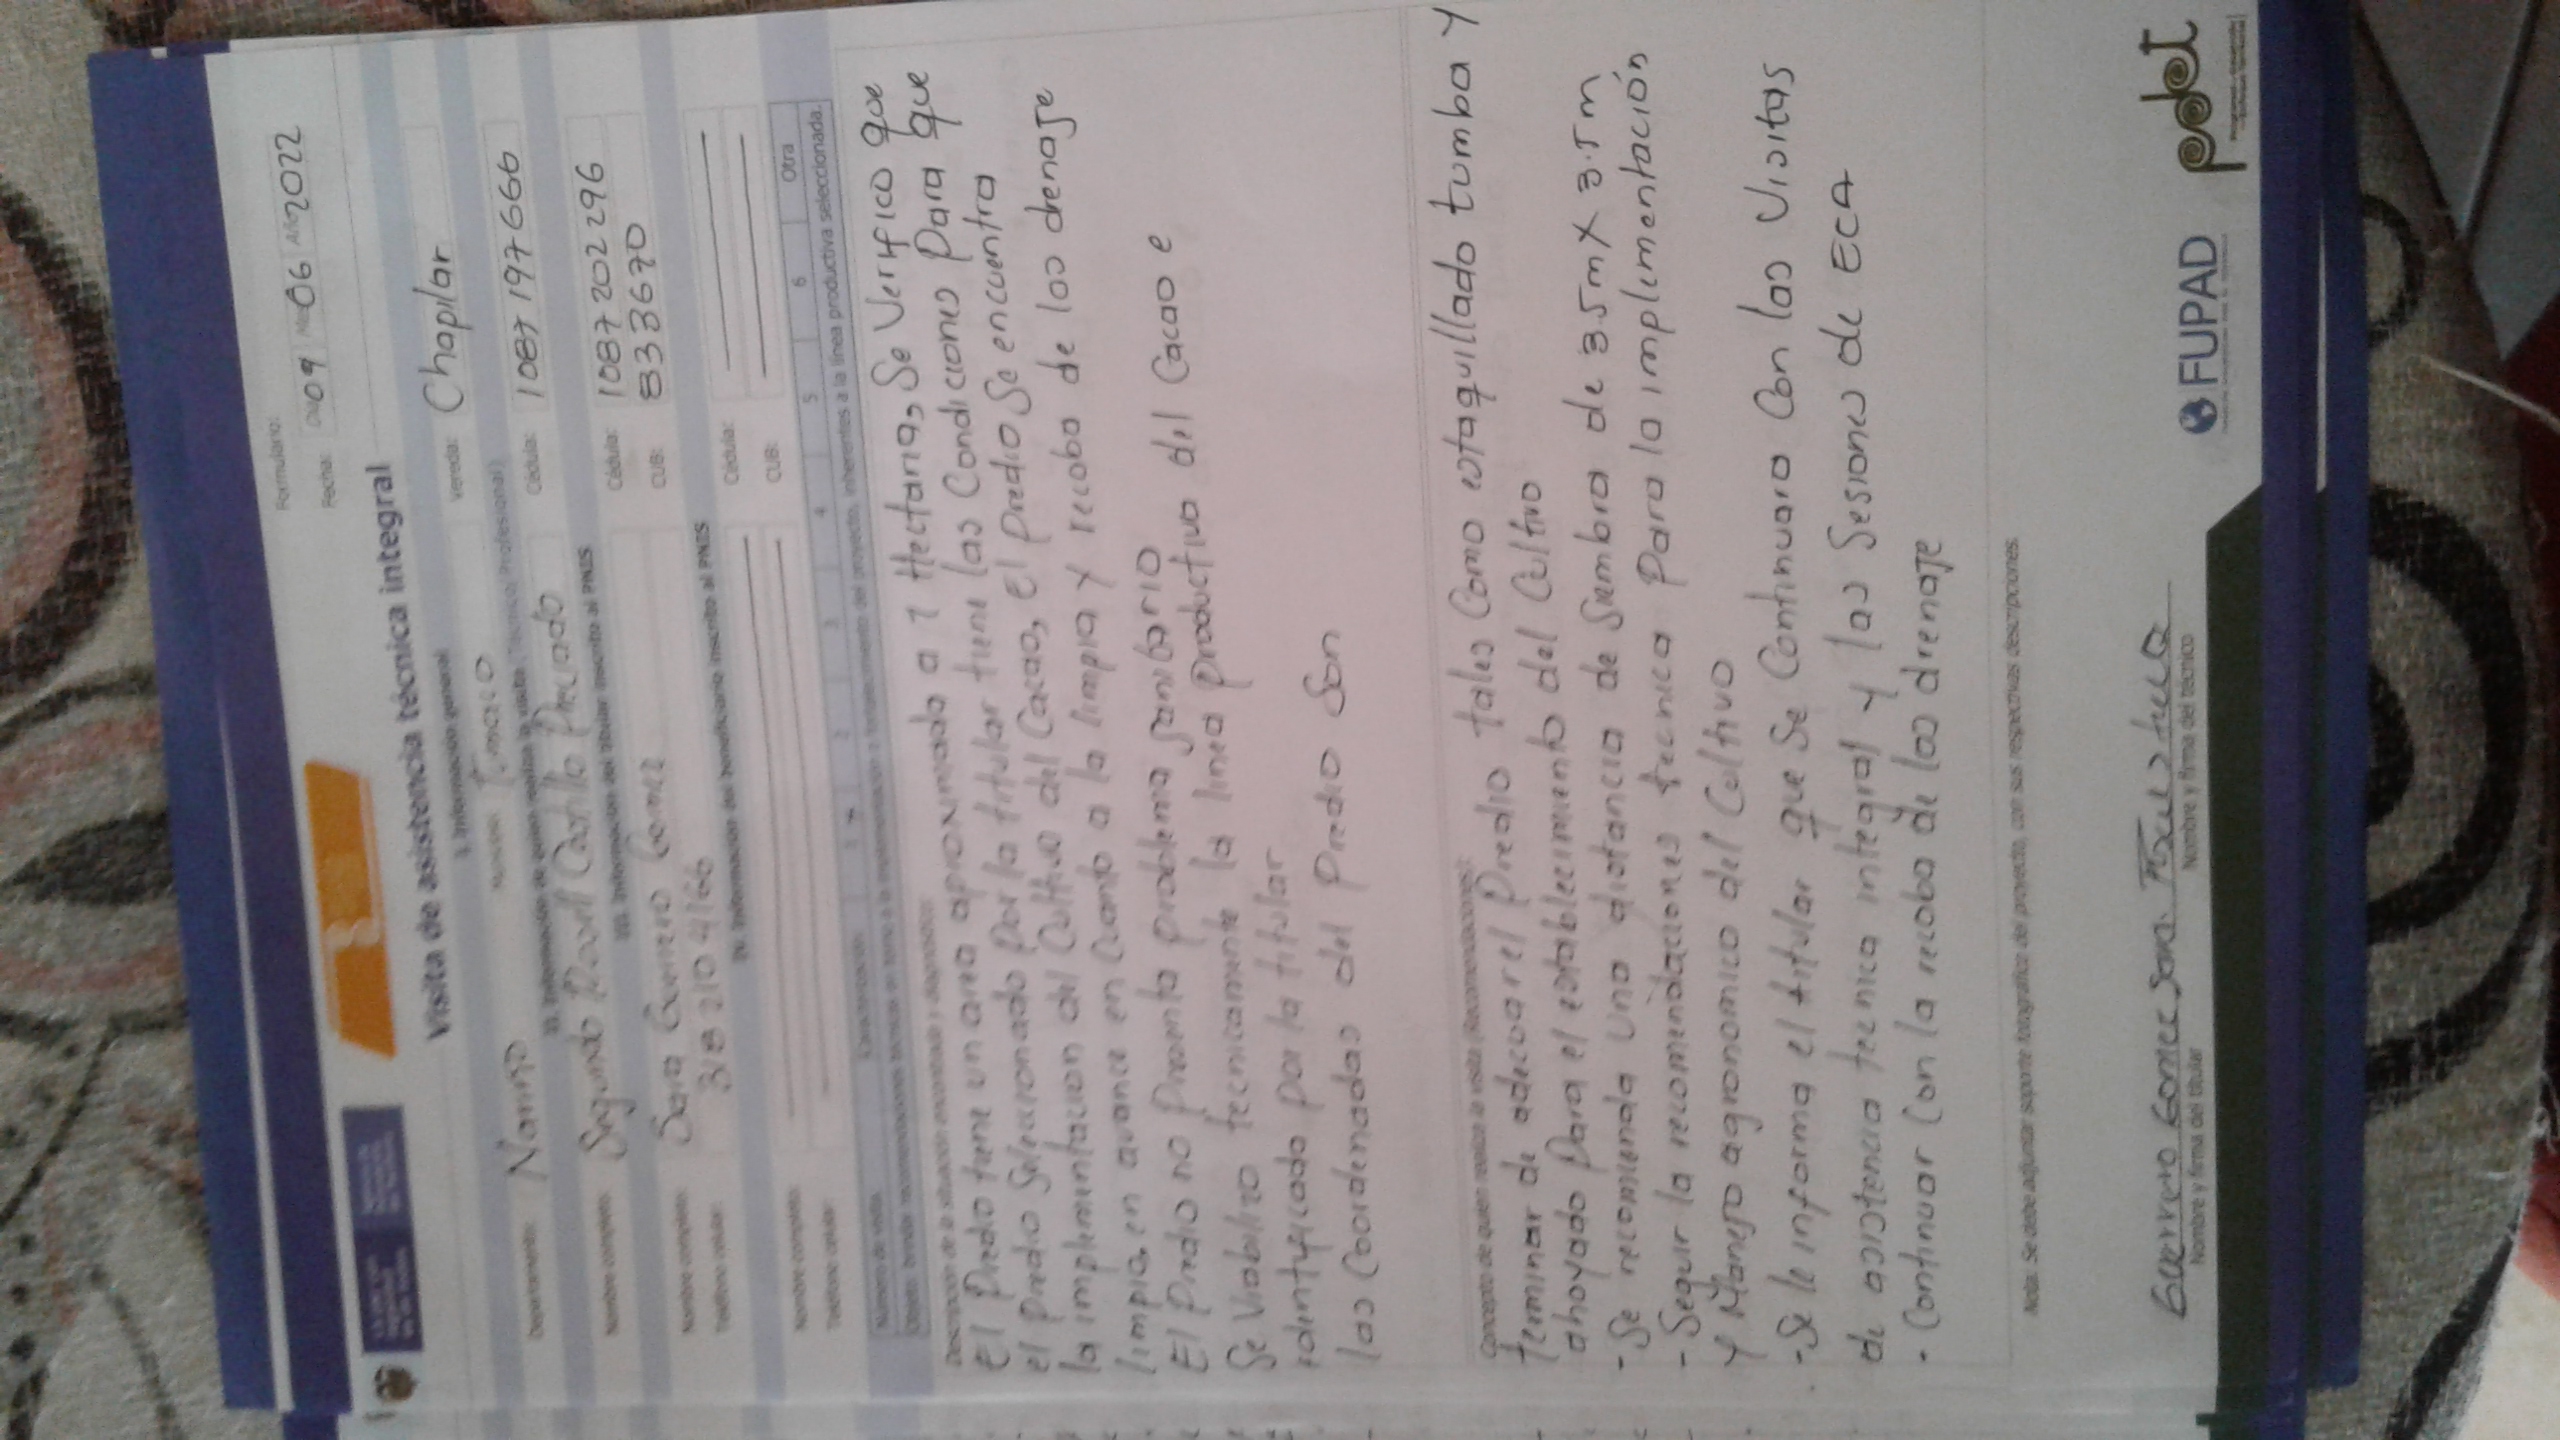 Formulario:
Fecha: Día 09 Mes 06 Año 2022
Visita de asistencia técnica integral
I. Información general
Departamento: Nariño Municipio: Tumaco Vereda: Chapilar
II. Información de quien realiza la visita (Técnico/ Profesional)
Nombre completo: Segundo Castillo Preciado Cédula: 1087197666
III. Información del titular inscrito al PNIS
Nombre completo: Sara Guerrero Gomez Cédula: 1087202296
Teléfono celular: CUB: 8336670
IV. Información del beneficiario inscrito al PNIS
Nombre completo: Cédula:
Teléfono celular: CUB:
Número de visita 1 2 3 4 5 6 Otra
inherentes a la línea productiva seleccionada.
Descripción de la situación encontrada y diagnóstico:
El Predio tiene un area aproximada a 1 Hectarias, Se Verifico que
el predio Seleccionado por la titular tiene las Condiciones Para que
la implementacion del Cultivo del Cacao, el Predio Se encuentra
limpia, en avance en Cuanto a la limpia y recoba de los drenaje
El Predio no Presenta problema sanitario
Se Viabilizo tecnicamente la linea Productiva del Cacao e
identificado por la titular
las Coordenadas del Predio Son
Concepto de quien realiza la visita (Recomendaciones):
terminar de adecoar el Predio tales Como estaquillado tumba Y
ahoyado Para el establecimiento del Cultivo
- Se recomienda una distancia de Siembra de 3.5m X 3.5m
- Seguir la recomendaciones tecnica Para la implementación
y Manejo agronomico del Cultivo
- Se le informa el titular que Se Continuara Con las Visitas
de asistencia tecnica integral y las Sesiones de ECA
- Continuar Con la recoba de los drenaje
Nota: Se debe adjuntar soporte fotográfico del proyecto, con sus respectivas descripciones.
Guerrero Gomez Sara
Nombre y firma del titular Nombre y firma del técnico
FUPAD pdet